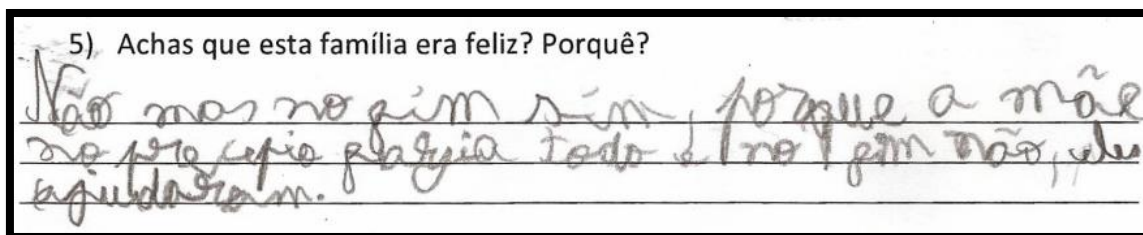 5) Achas que esta família era feliz? Porquê?
Não mas no fim sim, porque a mãe
no precepio fazia todo e no fim não, eles
ajudaram.